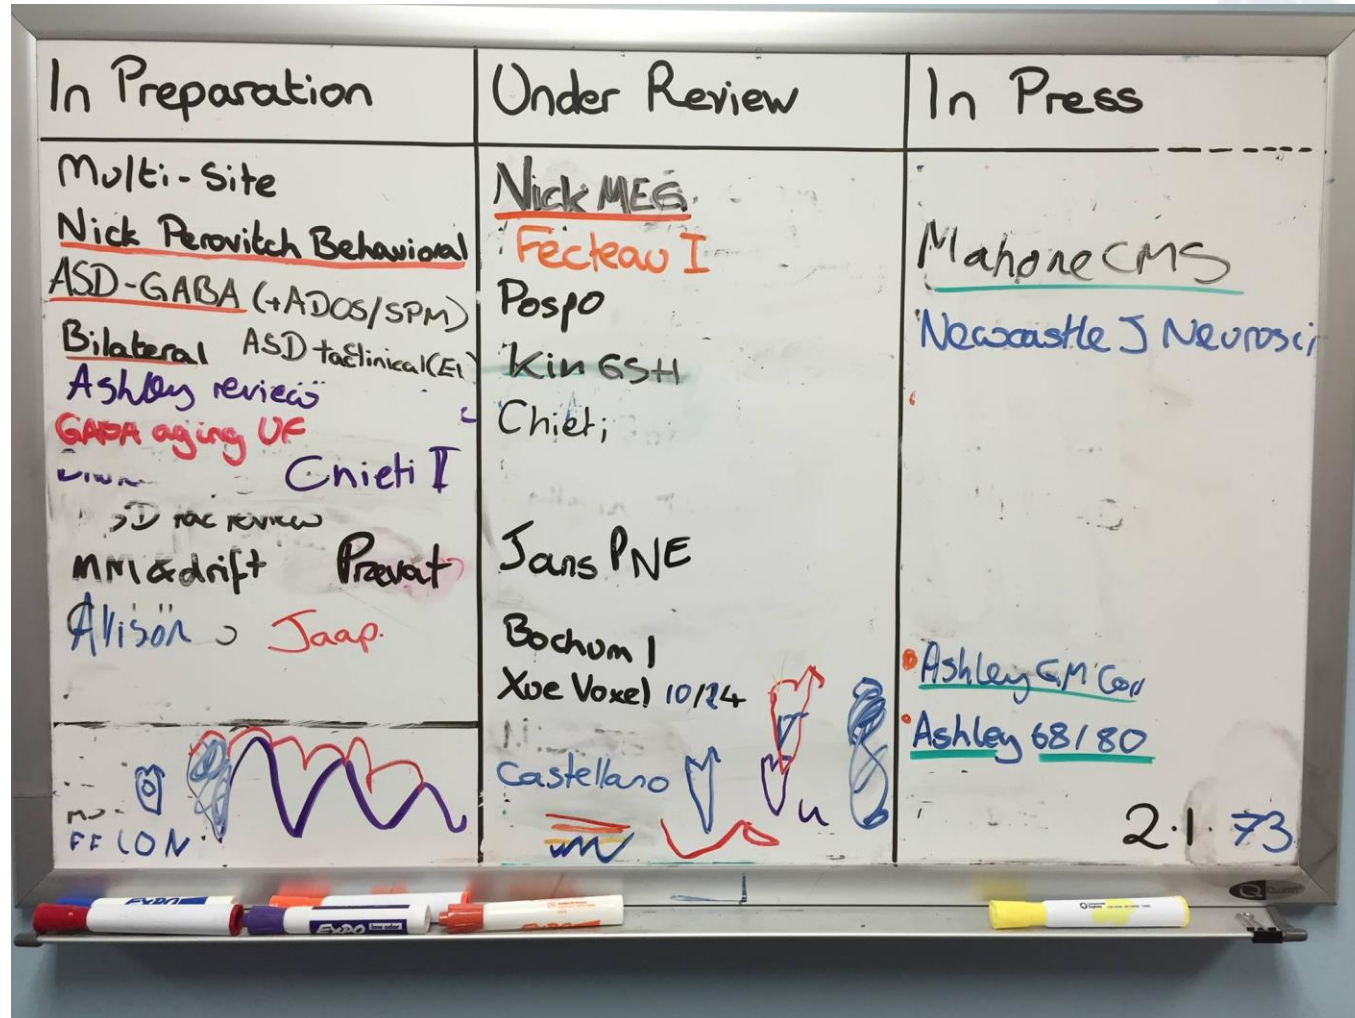 In Preparation
Multi-Site
Nick Perovitch Behavioral
ASD-GABA (+ADOS/SPM)
Bilateral ASD
Ashley review
GABA aging UF
Chieti II
review
MM & drift Prevat
Alison Jaap.
Under Review
Nick MEG
Fecteau I
Pospo
Kin GSH
Chieti
Jans PNE
Bochum 1
Xue Voxel 10/24
Castellano
In Press
Mahone CMS
Newcastle J Neurosci
Ashley GM Corr
Ashley 68/80
2.1.73
EXPO
EXPO
EXPO
Quartet